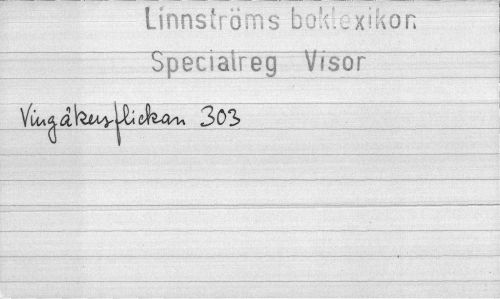 Linnströms boklexikon
Specialreg Visor
Vingåkersflickan 303